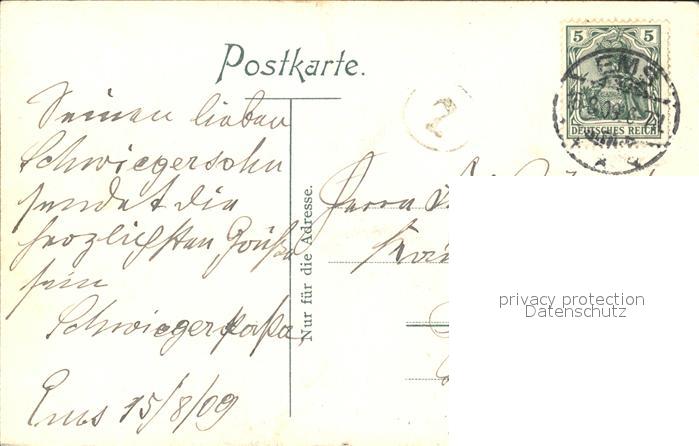 Postkarte.
5 5
DEUTSCHES REICH
EMS
2
Seinen lieben
Schwiegersohn
sendet die
herzlichsten Grüße
sein
Schwiegerpapa
Ems 15/8/09
Nur für die Adresse.
Herrn
privacy protection
Datenschutz